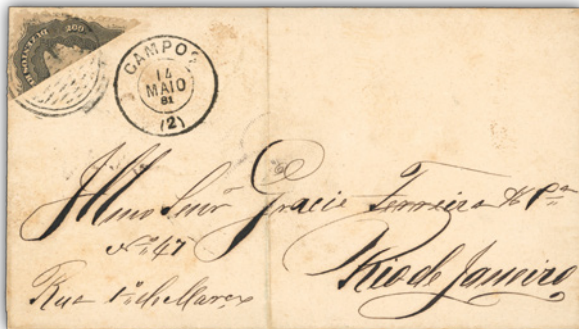 DUZENTOS RÉIS
200
CAMPOS
14
MAIO
81
(2)
Illmo Snr Gracie Ferreira & Ca
No 47
Rua 1o de Março
Rio de Janeiro